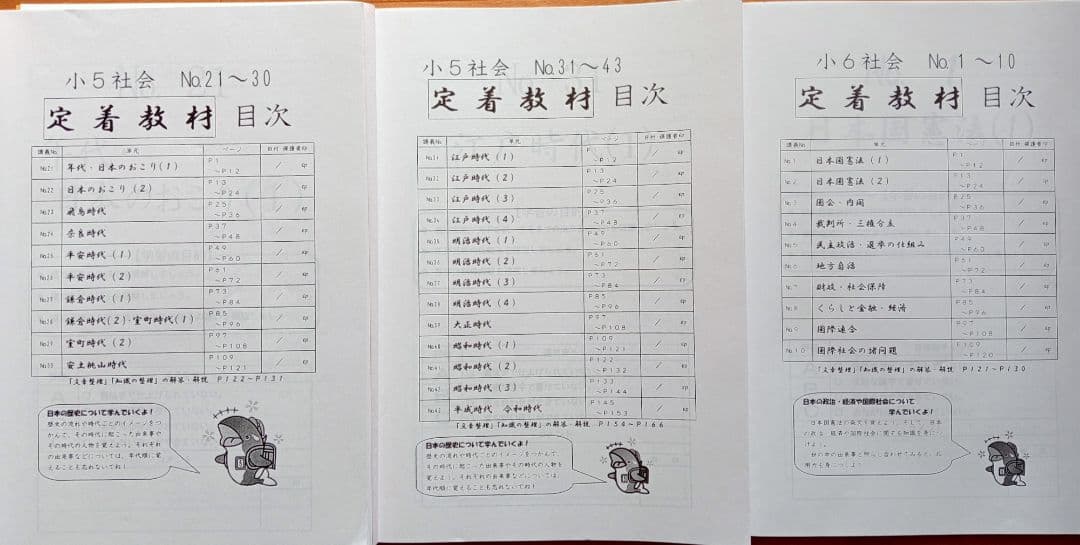 小5社会 No.21～30
定着教材 目次
講義No. 単元 ページ 日付 保護者印
No.21 年代・日本のおこり(1) P1～P12 / 印
No.22 日本のおこり(2) P13～P24 / 印
No.23 飛鳥時代 P25～P36 / 印
No.24 奈良時代 P37～P48 / 印
No.25 平安時代(1) P49～P60 / 印
No.26 平安時代(2) P61～P72 / 印
No.27 鎌倉時代(1) P73～P84 / 印
No.28 鎌倉時代(2)・室町時代(1) P85～P96 / 印
No.29 室町時代(2) P97～P108 / 印
No.30 安土桃山時代 P109～P121 / 印
「文章整理」「知識の整理」の解答・解説 P122～P131
日本の歴史について学んでいくよ!
歴史の流れや時代ごとのイメージをつ
かんで、その時代に起こった出来事や
その時代の人物を覚えよう。それぞれ
の出来事などについては、年代順に覚
えることも忘れないでね!
小5社会 No.31～43
定着教材 目次
講義No. 単元 ページ 日付 保護者印
No.31 江戸時代(1) P1～P12 / 印
No.32 江戸時代(2) P13～P24 / 印
No.33 江戸時代(3) P25～P36 / 印
No.34 江戸時代(4) P37～P48 / 印
No.35 明治時代(1) P49～P60 / 印
No.36 明治時代(2) P61～P72 / 印
No.37 明治時代(3) P73～P84 / 印
No.38 明治時代(4) P85～P96 / 印
No.39 大正時代 P97～P108 / 印
No.40 昭和時代(1) P109～P121 / 印
No.41 昭和時代(2) P122～P132 / 印
No.42 昭和時代(3) P133～P144 / 印
No.43 平成時代 令和時代 P145～P153 / 印
「文章整理」「知識の整理」の解答・解説 P154～P166
日本の歴史について学んでいくよ!
歴史の流れや時代ごとのイメージをつかんで、
その時代に起こった出来事やその時代の人物を
覚えよう。それぞれの出来事などについては、
年代順に覚えることも忘れないでね!
小6社会 No.1～10
定着教材 目次
講義No. 単元 ページ 日付 保護者印
No.1 日本国憲法(1) P1～P12 / 印
No.2 日本国憲法(2) P13～P24 / 印
No.3 国会・内閣 P25～P36 / 印
No.4 裁判所・三権分立 P37～P48 / 印
No.5 民主政治・選挙の仕組み P49～P60 / 印
No.6 地方自治 P61～P72 / 印
No.7 財政・社会保障 P73～P84 / 印
No.8 くらしと金融・経済 P85～P96 / 印
No.9 国際連合 P97～P108 / 印
No.10 国際社会の諸問題 P109～P120 / 印
「文章整理」「知識の整理」の解答・解説 P121～P130
日本の政治・経済や国際社会について
学んでいくよ!